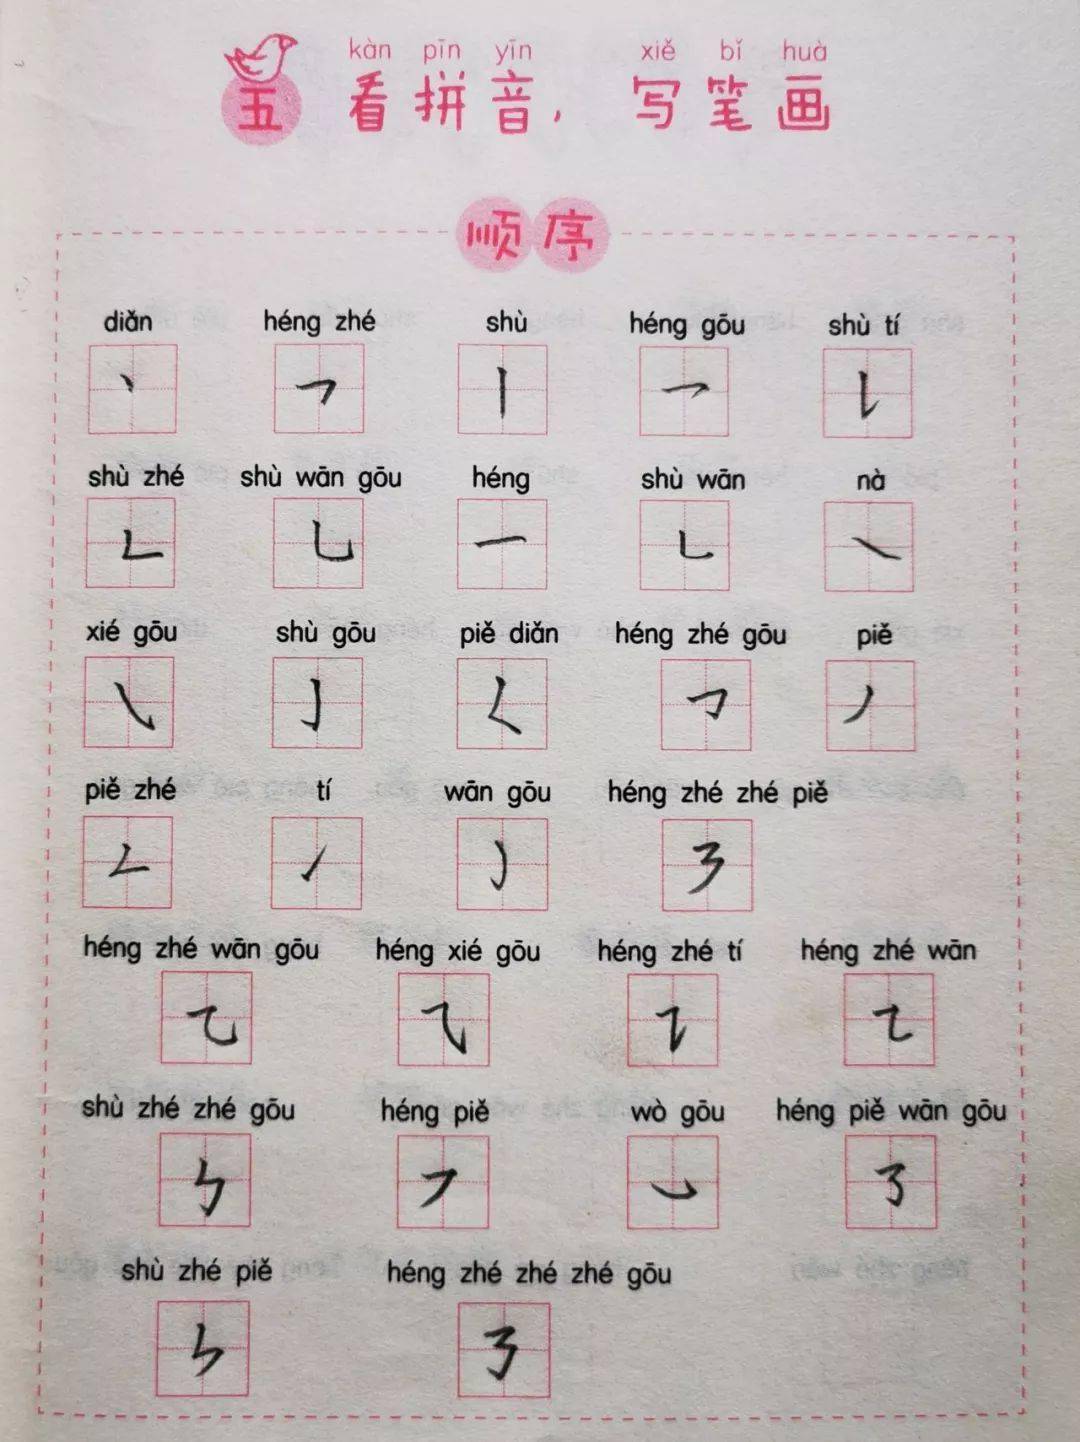 kàn pīn yīn xiě bǐ huà
五 看拼音，写笔画
顺序
diǎn héng zhé shù héng gōu shù tí
丶 ㇕ 丨 ㇖ ㇙
shù zhé shù wān gōu héng shù wān nà
㇗ ㇟ 一 ㇄ ㇏
xié gōu shù gōu piě diǎn héng zhé gōu piě
㇂ 亅 ㇛ ㇆ 丿
piě zhé tí wān gōu héng zhé zhé piě
㇜ ㇀ ㇁ ㇋
héng zhé wān gōu héng xié gōu héng zhé tí héng zhé wān
㇈ ⺄ ㇊ ㇍
shù zhé zhé gōu héng piě wò gōu héng piě wān gōu
㇉ ㇇ ㇃ ㇌
shù zhé piě héng zhé zhé zhé gōu
ㄣ ㇡